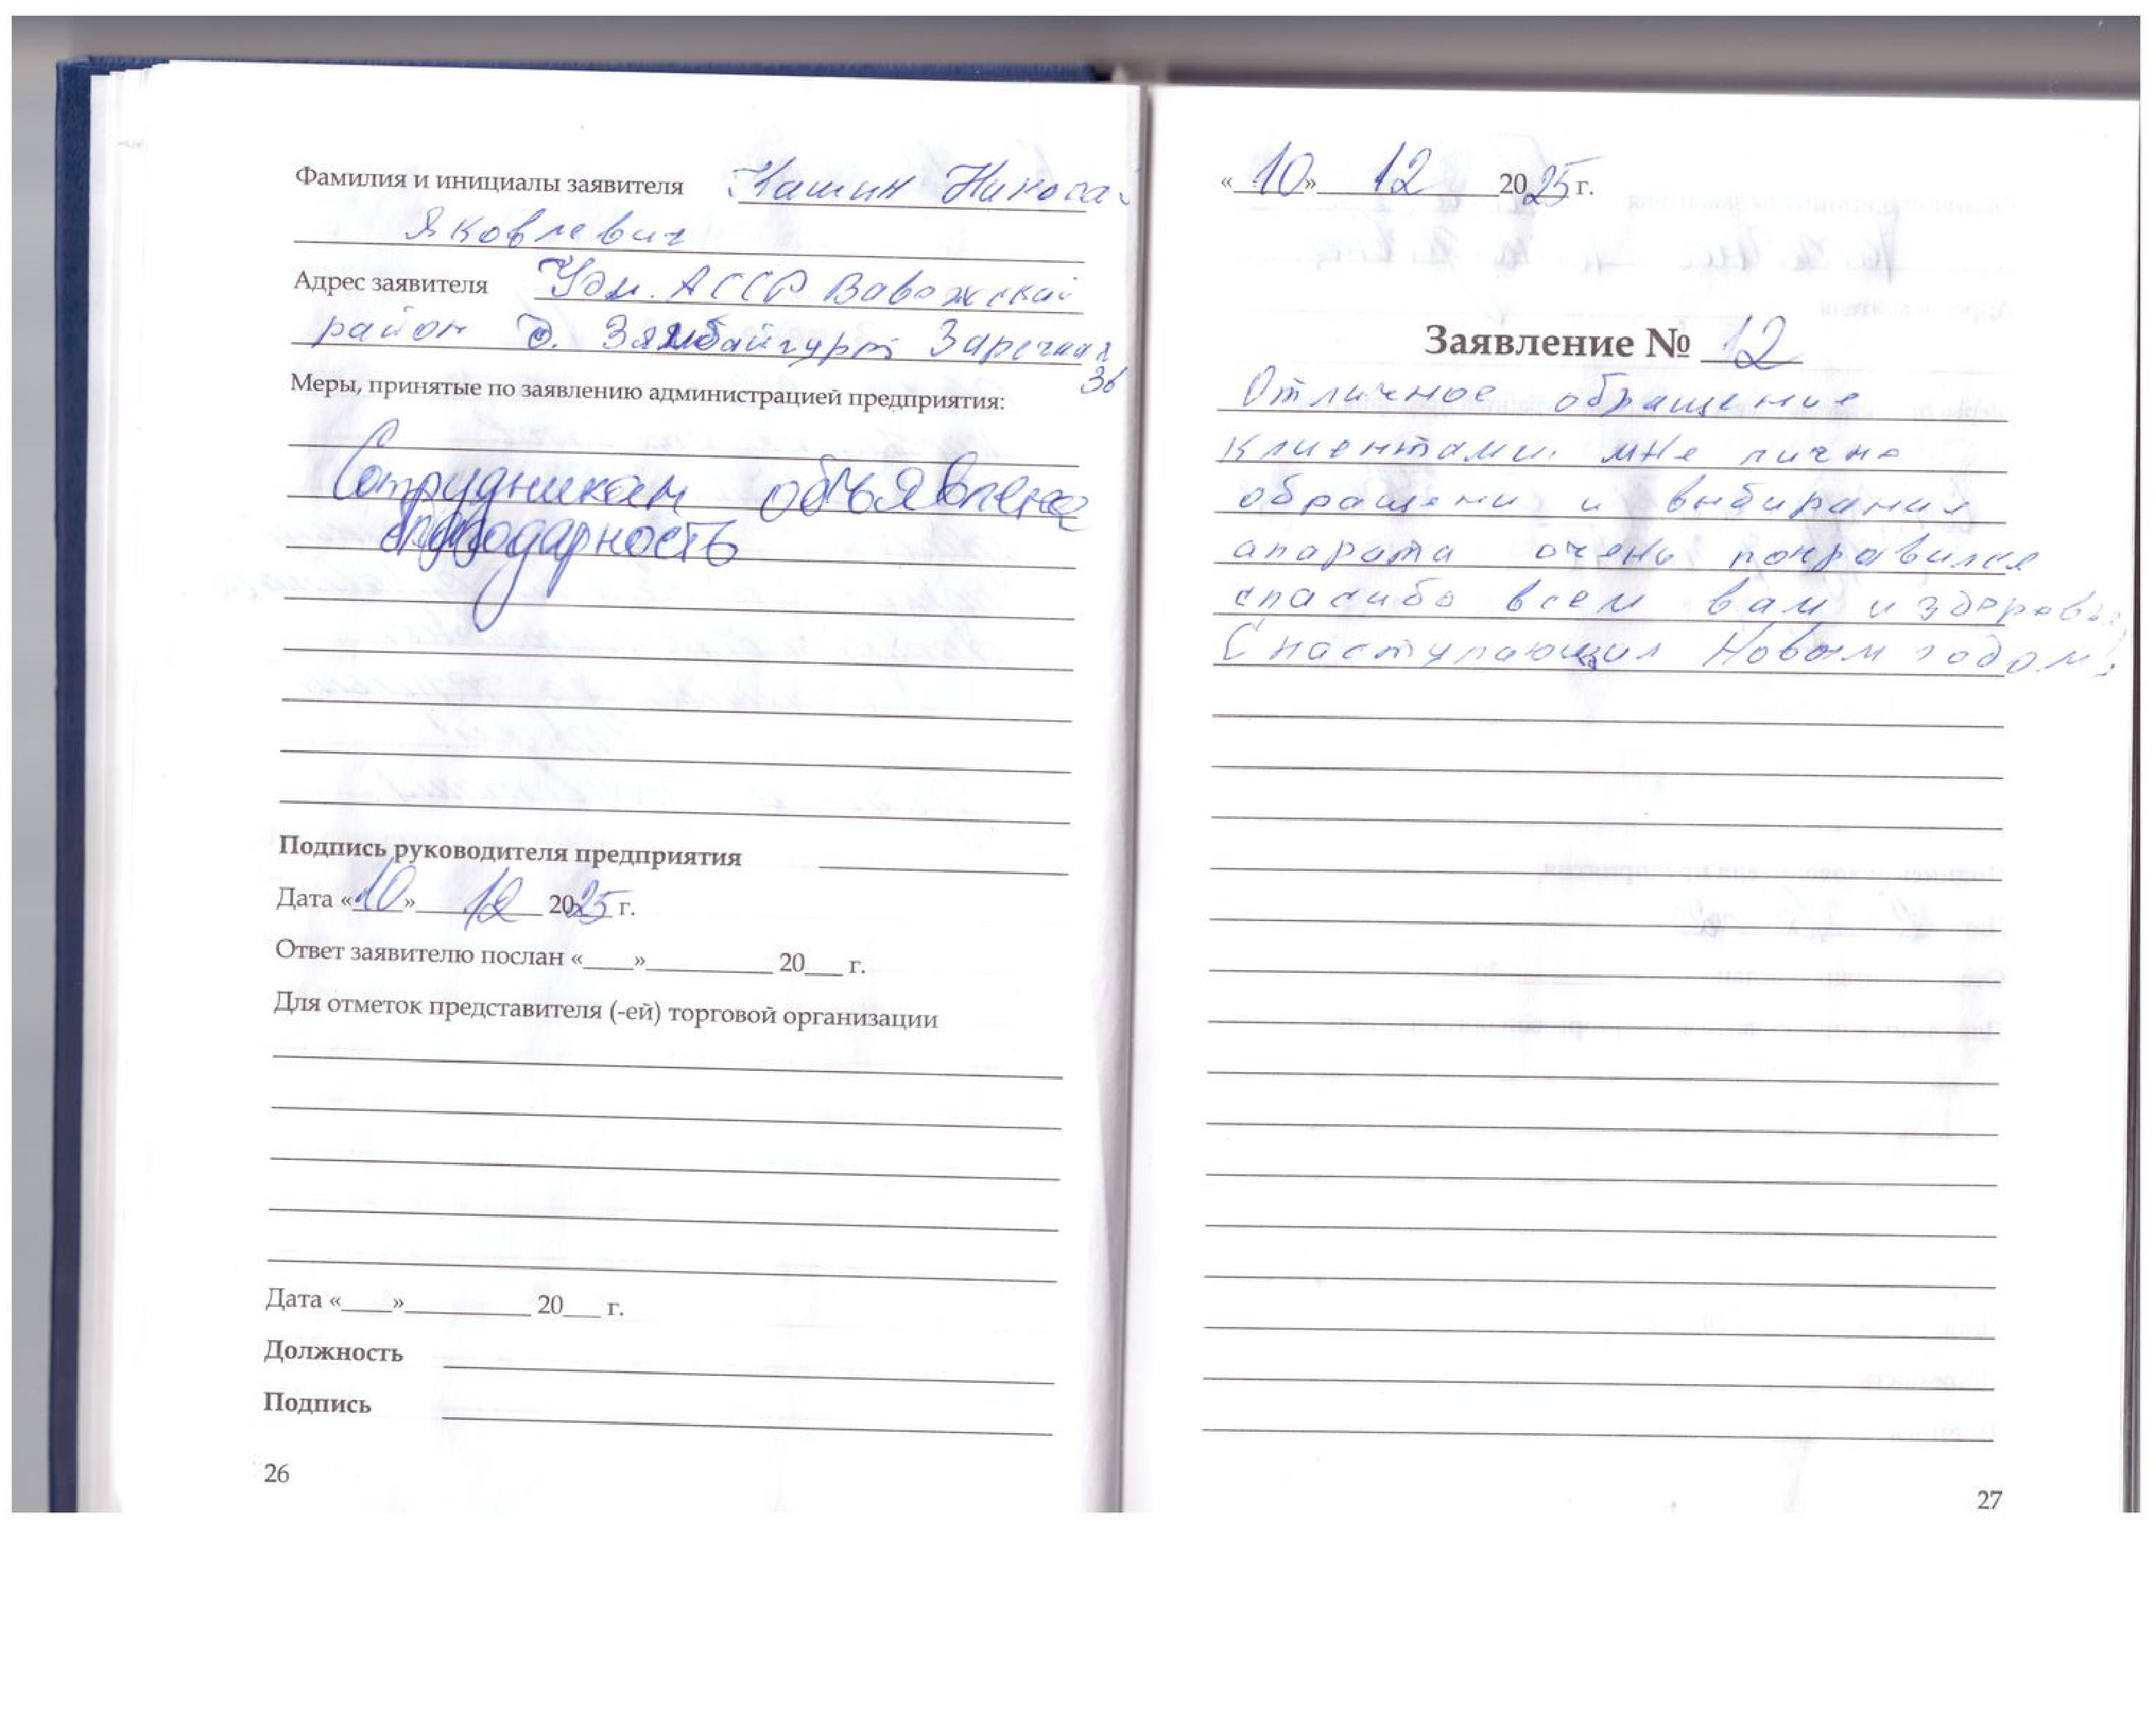 Фамилия и инициалы заявителя Кашин Никола
Яковлевич
Адрес заявителя Удм. АССР Вавожский
район д. Зямбайгурт Заречная
3б
Меры, принятые по заявлению администрацией предприятия:
Сотрудникам объявлена
благодарность
Подпись руководителя предприятия
Дата «10» 12 2025 г.
Ответ заявителю послан «___»__________ 20___ г.
Для отметок представителя (-ей) торговой организации
Дата «____»__________ 20___ г.
Должность
Подпись
26
«10» 12 2025 г.
Заявление № 12
Отличное обращение
клиентами. мне лично
обращени и выбирания
апарата очень понравился
спасибо всем вам и здоровь
С наступающим Новым годом!
27